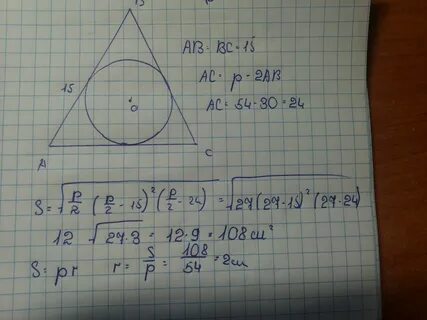 B
AB = BC = 15
15
AC = p - 2AB
AC = 54 - 30 = 24
O
A
C
S = √(p/2 (p/2 - 15)² (p/2 - 24)) = √(27(27-15)² (27-24))
12 √(27·3) = 12·9 = 108 см²
S = pr r = S/p = 108/54 = 2см